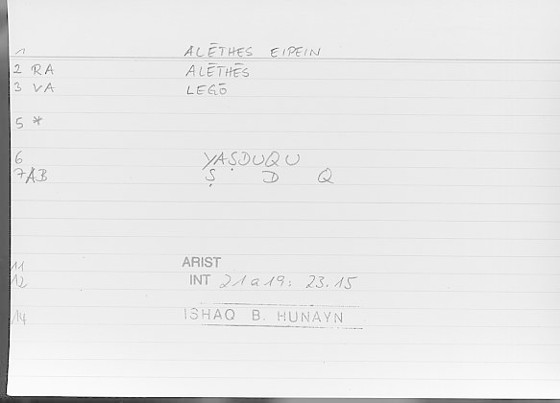 1 ALĒTHES EIPEIN
2 RA ALĒTHĒS
3 VA LEGŌ
5 *
6 YAṢDUQU
7AB Ṣ D Q
11 ARIST
12 INT 21a19: 23.15
14 ISHAQ B. HUNAYN